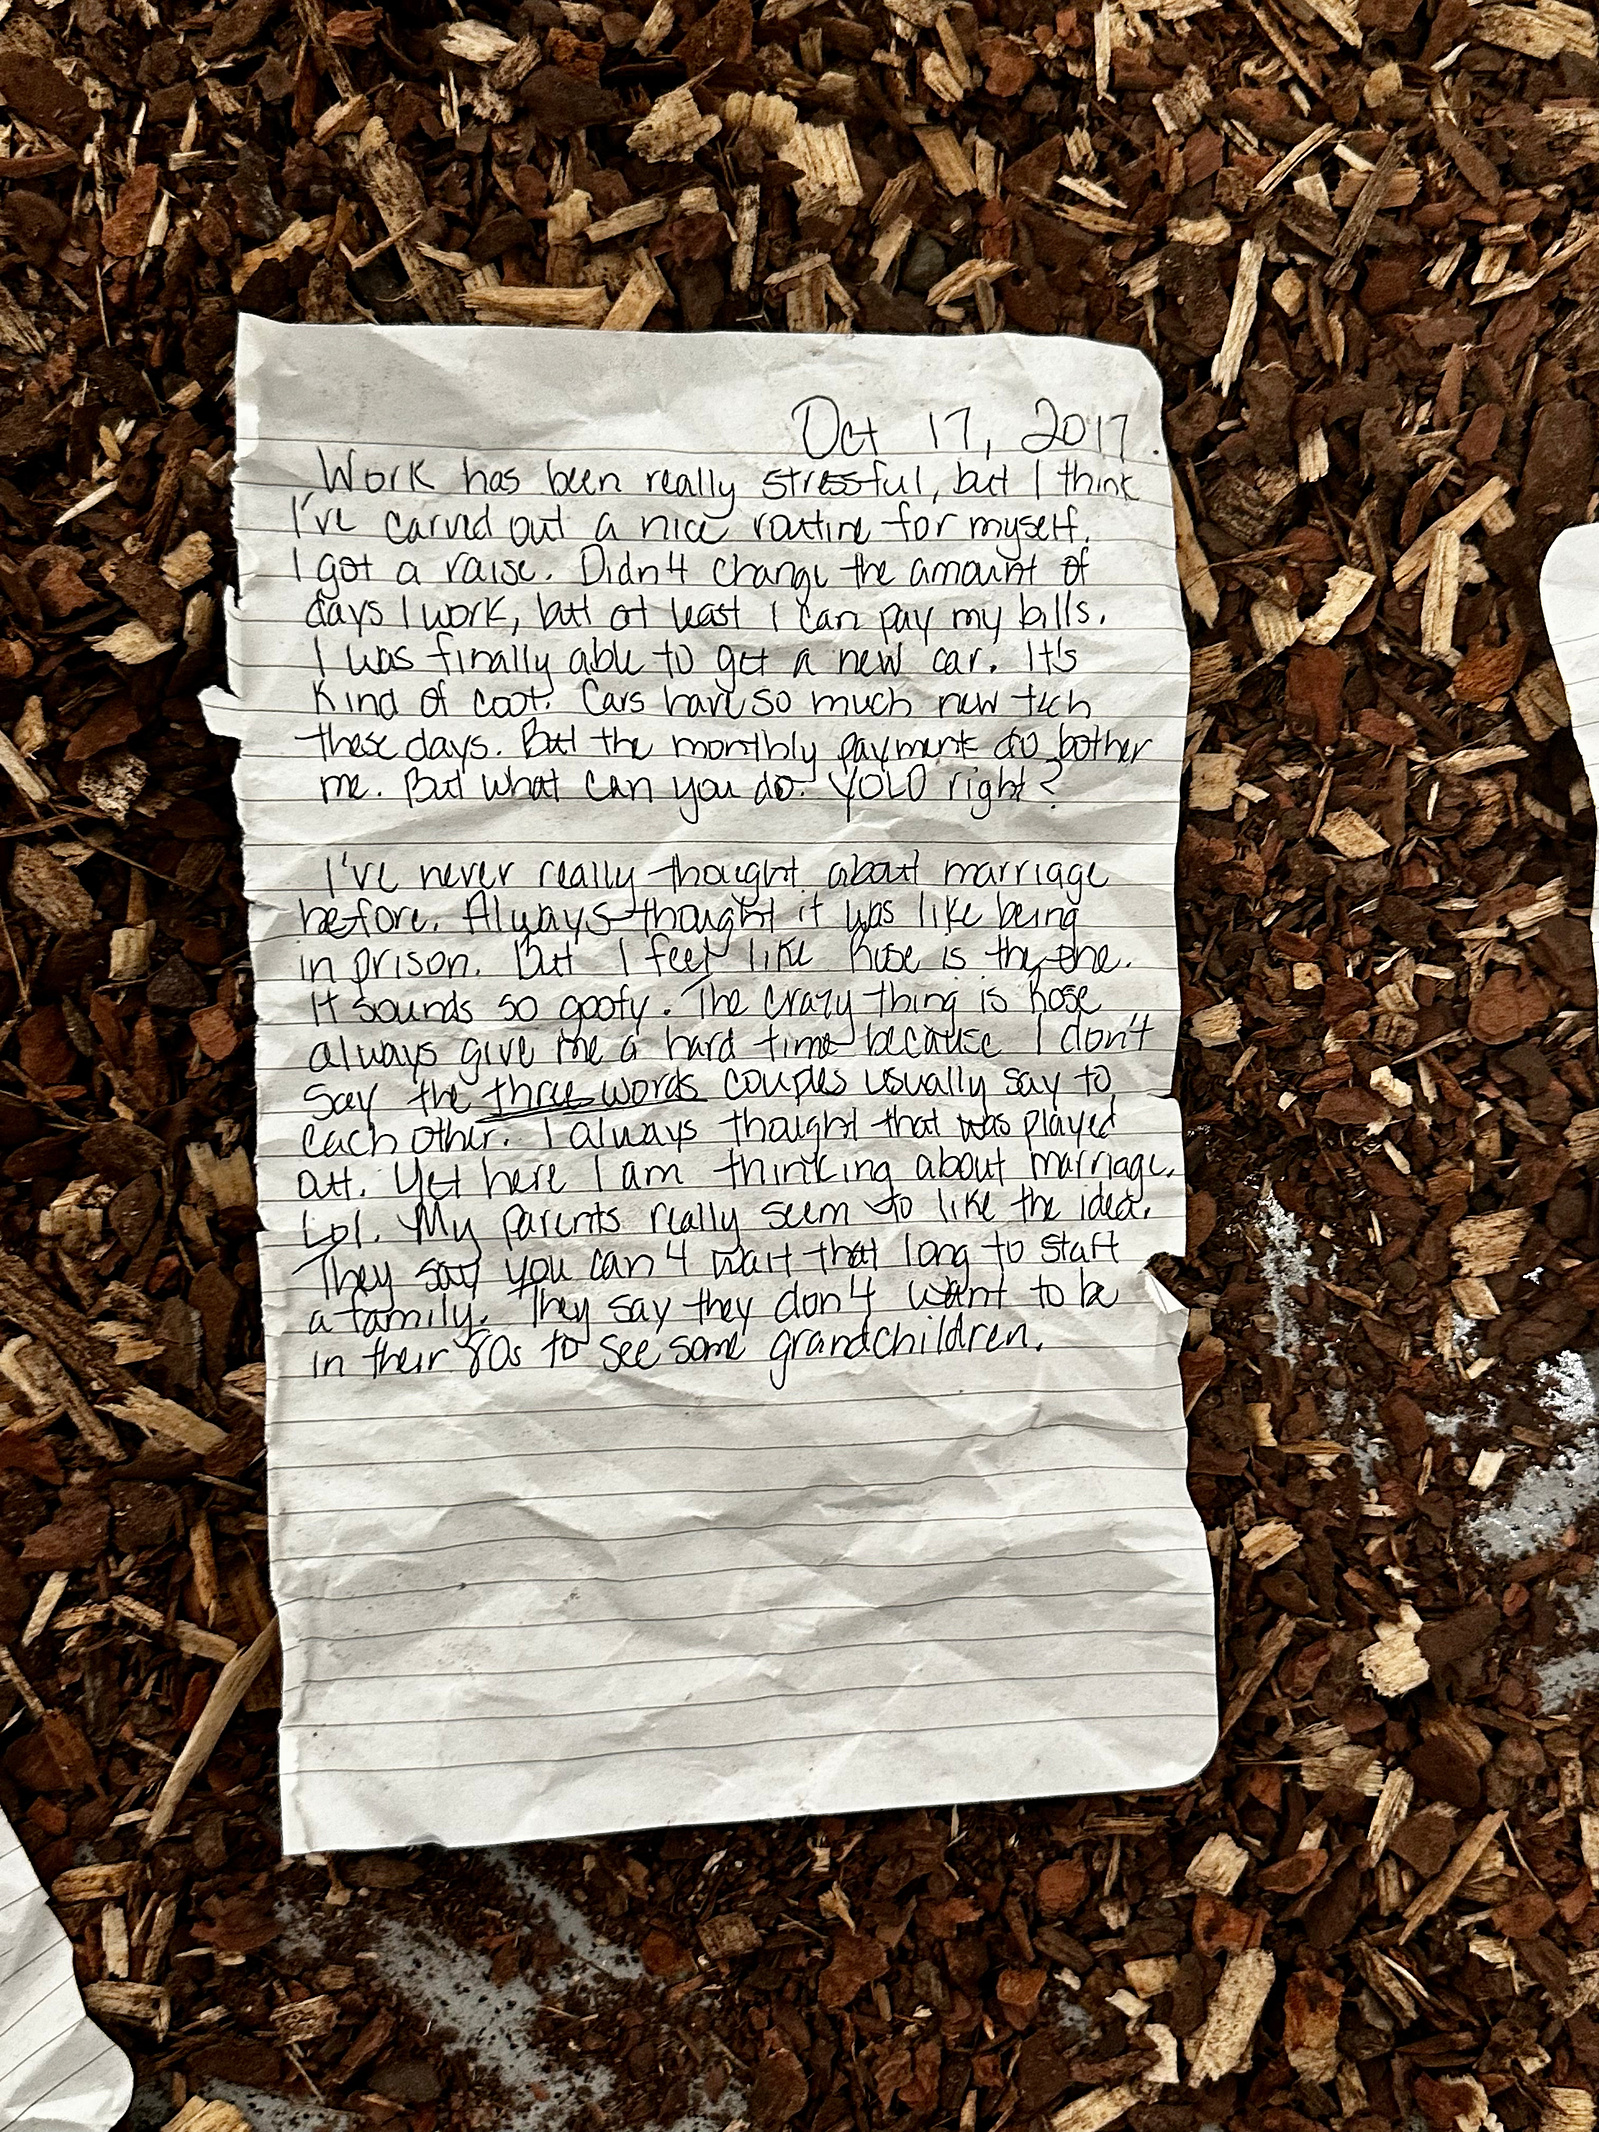 Oct 17, 2017.
Work has been really stressful, but I think
I've carved out a nice routine for myself.
I got a raise. Didn't change the amount of
days I work, but at least I can pay my bills.
I was finally able to get a new car. It's
kind of cool. Cars have so much new tech
these days. But the monthly payments do bother
me. But what can you do. YOLO right?
I've never really thought about marriage
before. Always thought it was like being
in prison. But I feel like Rose is the one.
It sounds so goofy. The crazy thing is Rose
always give me a hard time because I don't
say the three words couples usually say to
each other. I always thought that was played
out. Yet here I am thinking about marriage.
Lol. My parents really seem to like the idea.
They say you can't wait that long to start
a family. They say they don't want to be
in their 80s to see some grandchildren.